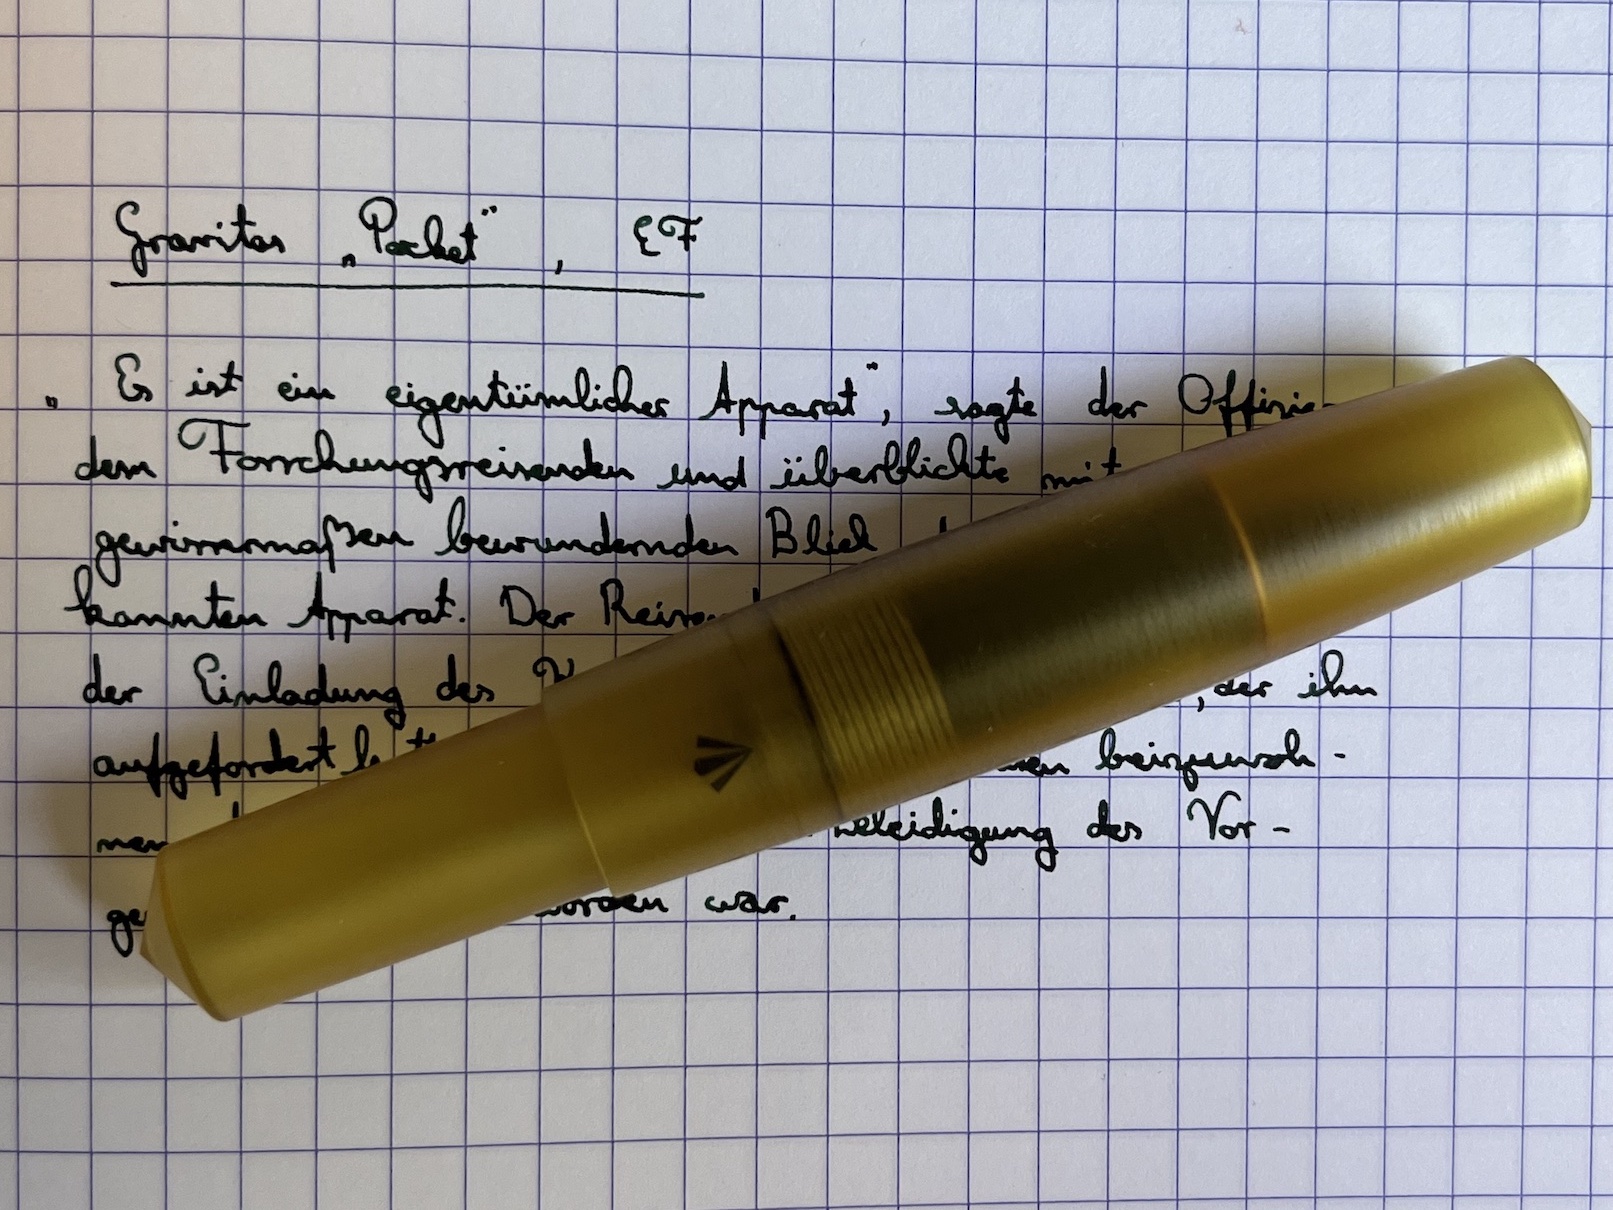 Gravitas „Pocket“, EF
„Es ist ein eigentümlicher Apparat“, sagte der Offizie
dem Forschungsreisenden und überblickte mit
gewissermaßen bewundernden Blick
kannten Apparat. Der Reisen
der Einladung des , der ihm
aufgefordert beizuwoh-
nen eleidigung des Vor-
ge worden war.